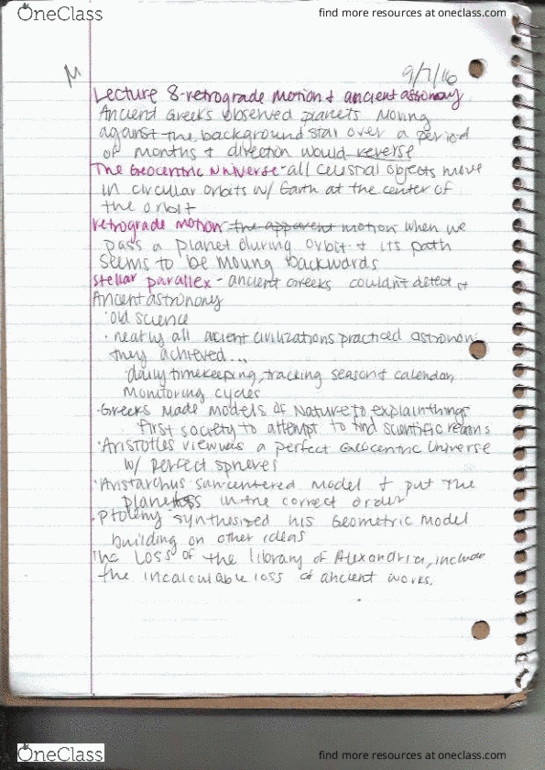 OneClass
find more resources at oneclass.com
M
9/7/16
Lecture 8-retrograde motion & ancient astronomy
Ancient Greeks observed planets moving
against the background star over a period
of months & direction would reverse
The Geocentric Universe-all celestial objects move
in circular orbits w/ Earth at the center of
the orbit
retrograde motion-the apparent motion when we
pass a planet during orbit & its path
seems to be moving backwards
stellar parallex - ancient Greeks couldn't detect it
Ancient astronomy
·old science
·nearly all acient civilizations practiced astronomy
they achieved...
·daily timekeeping, tracking season & calendar,
monitoring cycles
·Greeks made models of nature to explain things
first society to attempt to find scientific reasons
·Aristotles view was a perfect Geocentric Universe
w/ perfect spheres
·Aristarchus sun-centered model & put the
planets in the correct order
·Ptolemy synthesized his Geometric model
building on other ideas
The Loss of the library of Alexandria, include
the incalculable loss of ancient works.
OneClass
find more resources at oneclass.com